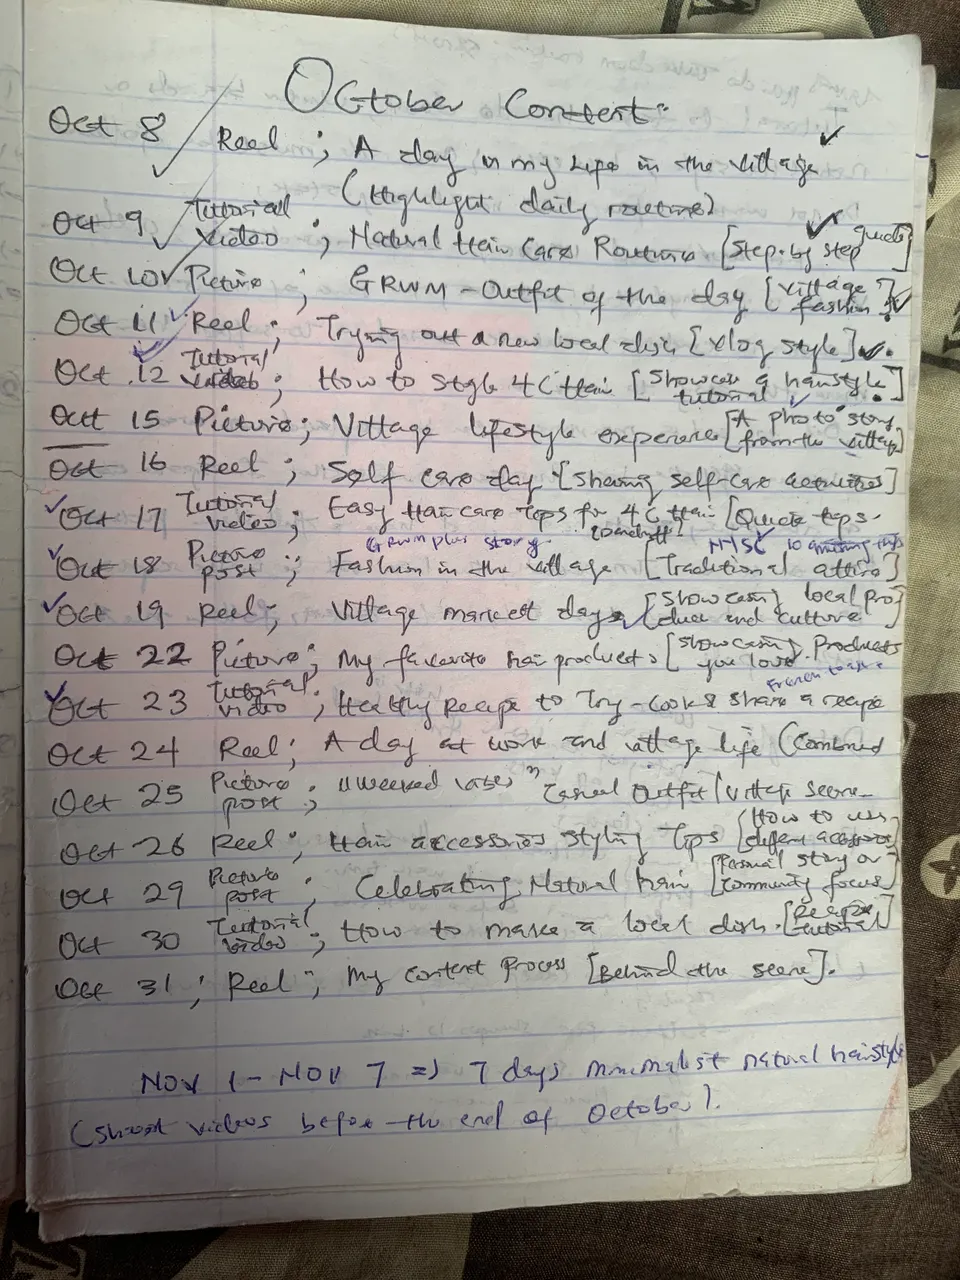 October Content:
Oct 8 Reel; A day in my life in the village
(Highlight daily routine)
Oct 9 Tutorial video; Natural Hair Care Routine [Step-by step guide]
Oct 10 Picture; GRWM - Outfit of the day [Village fashion]
Oct 11 Reel; Trying out a new local dish [Vlog style].
Oct 12 Tutorial video; How to style 4C Hair [Showcase a hairstyle tutorial]
Oct 15 Picture; Village lifestyle experience [A photo story from the village]
Oct 16 Reel; Self care day [Sharing self-care activities]
Oct 17 Tutorial video; Easy Haircare Tips for 4C Hair [Quick tips.
GRWM plus story. NYSC 10 amazing
Oct 18 Picture post; Fashion in the village [Traditional attire]
Oct 19 Reel; Village market day [Showcasing local produce and culture
Oct 22 Picture; My favorite hair products [Showcasing Products you love.
Oct 23 Tutorial video; Healthy Recipe to Try - Cook & share a recipe
Oct 24 Reel; A day at work and village life (Combined
Oct 25 Picture post; "Weekend vibes" Casual Outfit / Village scene
Oct 26 Reel; Hair accessories styling Tips [How to use different accessories
Oct 29 Picture post; Celebrating Natural hair [Personal story or community focus]
Oct 30 Tutorial video; How to make a local dish. [Recipe tutorial]
Oct 31; Reel; My content Process [Behind the scene].
Nov 1 - Nov 7 => 7 days minimalist natural hairstyle
(shoot videos before the end of October).